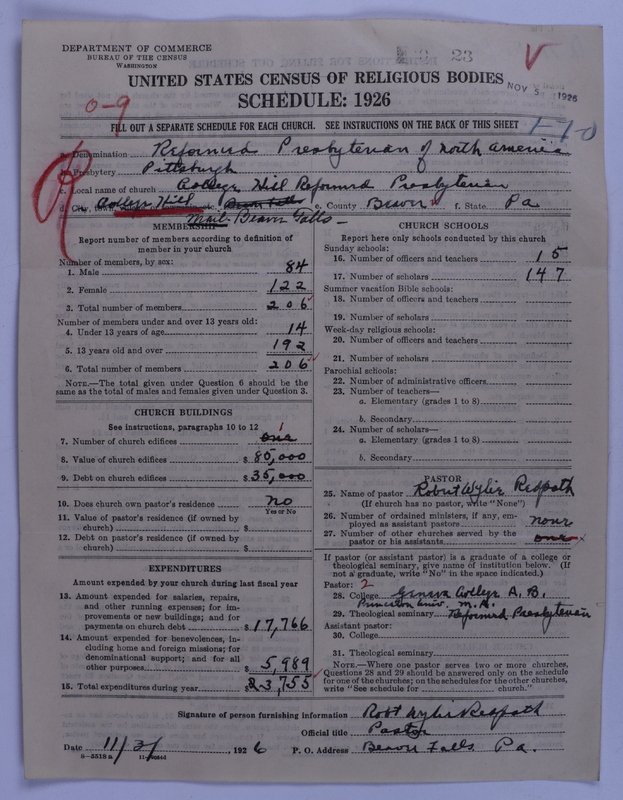 DEPARTMENT OF COMMERCE
BUREAU OF THE CENSUS
WASHINGTON
23
V
UNITED STATES CENSUS OF RELIGIOUS BODIES
NOV 5 1926
SCHEDULE: 1926
0-9
FILL OUT A SEPARATE SCHEDULE FOR EACH CHURCH. SEE INSTRUCTIONS ON THE BACK OF THIS SHEET
1-10
R
a. Denomination Reformed Presbyterian of North America
b. Presbytery Pittsburgh
c. Local name of church College Hill Reformed Presbyterian
d. City, College Hill Beaver Falls e. County Beaver f. State Pa
Mail- Beaver Falls -
MEMBERSHIP
Report number of members according to definition of
member in your church
Number of members, by sex:
1. Male 84
2. Female 122
3. Total number of members 206
Number of members under and over 13 years old:
4. Under 13 years of age 14
5. 13 years old and over 192
6. Total number of members 206
NOTE.—The total given under Question 6 should be the
same as the total of males and females given under Question 3.
CHURCH BUILDINGS
See instructions, paragraphs 10 to 12
7. Number of church edifices one 1
8. Value of church edifices $ 85,000
9. Debt on church edifices $ 35,000
10. Does church own pastor's residence No
Yes or No
11. Value of pastor's residence (if owned by
church) $
12. Debt on pastor's residence (if owned by
church) $
EXPENDITURES
Amount expended by your church during last fiscal year
13. Amount expended for salaries, repairs,
and other running expenses; for im-
provements or new buildings; and for
payments on church debt $ 17,766
14. Amount expended for benevolences, in-
cluding home and foreign missions; for
denominational support; and for all
other purposes $ 5,989
15. Total expenditures during year $ 23,755
CHURCH SCHOOLS
Report here only schools conducted by this church
Sunday schools:
16. Number of officers and teachers 15
17. Number of scholars 147
Summer vacation Bible schools:
18. Number of officers and teachers
19. Number of scholars
Week-day religious schools:
20. Number of officers and teachers
21. Number of scholars
Parochial schools:
22. Number of administrative officers
23. Number of teachers—
a. Elementary (grades 1 to 8)
b. Secondary
24. Number of scholars—
a. Elementary (grades 1 to 8)
b. Secondary
PASTOR
25. Name of pastor Robert Wylie Redpath
(If church has no pastor, write "None")
26. Number of ordained ministers, if any, em-
ployed as assistant pastors none
27. Number of other churches served by the
pastor or his assistants one x
If pastor (or assistant pastor) is a graduate of a college or
theological seminary, give name of institution below. (If
not a graduate, write "No" in the space indicated.)
Pastor: 2
28. College Geneva College A. B.
Princeton Univ. M. A.
29. Theological seminary Reformed Presbyterian
Assistant pastor:
30. College
31. Theological seminary
NOTE.—Where one pastor serves two or more churches,
Questions 28 and 29 should be answered only on the schedule
for one of the churches; on the schedules for the other churches,
write "See schedule for church."
Signature of person furnishing information Robt Wylie Redpath
Official title Pastor
Date 11/3/, 1926 P. O. Address Beaver Falls Pa.
8-5518 a